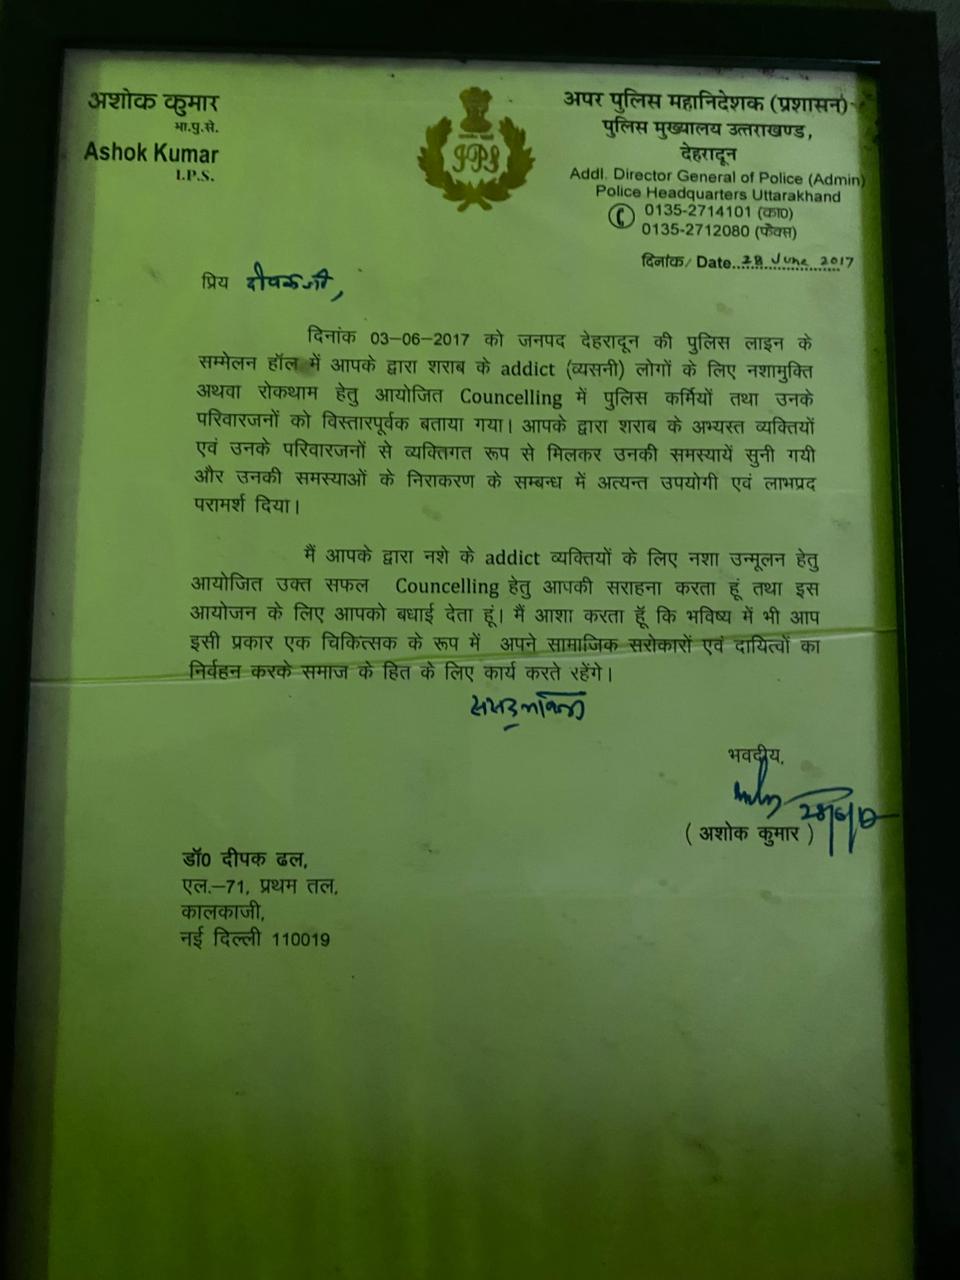 अशोक कुमार
भा.पु.से.
Ashok Kumar
I.P.S.
IPS
अपर पुलिस महानिदेशक (प्रशासन)
पुलिस मुख्यालय उत्तराखण्ड,
देहरादून
Addl. Director General of Police (Admin)
Police Headquarters Uttarakhand
0135-2714101 (का0)
0135-2712080 (फैक्स)
दिनांक/ Date..28 June 2017
प्रिय दीपक जी,
दिनांक 03-06-2017 को जनपद देहरादून की पुलिस लाइन के
सम्मेलन हॉल में आपके द्वारा शराब के addict (व्यसनी) लोगों के लिए नशामुक्ति
अथवा रोकथाम हेतु आयोजित Councelling में पुलिस कर्मियों तथा उनके
परिवारजनों को विस्तारपूर्वक बताया गया। आपके द्वारा शराब के अभ्यस्त व्यक्तियों
एवं उनके परिवारजनों से व्यक्तिगत रूप से मिलकर उनकी समस्यायें सुनी गयी
और उनकी समस्याओं के निराकरण के सम्बन्ध में अत्यन्त उपयोगी एवं लाभप्रद
परामर्श दिया।
मैं आपके द्वारा नशे के addict व्यक्तियों के लिए नशा उन्मूलन हेतु
आयोजित उक्त सफल Councelling हेतु आपकी सराहना करता हूं तथा इस
आयोजन के लिए आपको बधाई देता हूं। मैं आशा करता हूँ कि भविष्य में भी आप
इसी प्रकार एक चिकित्सक के रूप में अपने सामाजिक सरोकारों एवं दायित्वों का
निर्वहन करके समाज के हित के लिए कार्य करते रहेंगे।
भवदीय,
( अशोक कुमार )
डॉ0 दीपक ढल,
एल.-71, प्रथम तल,
कालकाजी,
नई दिल्ली 110019